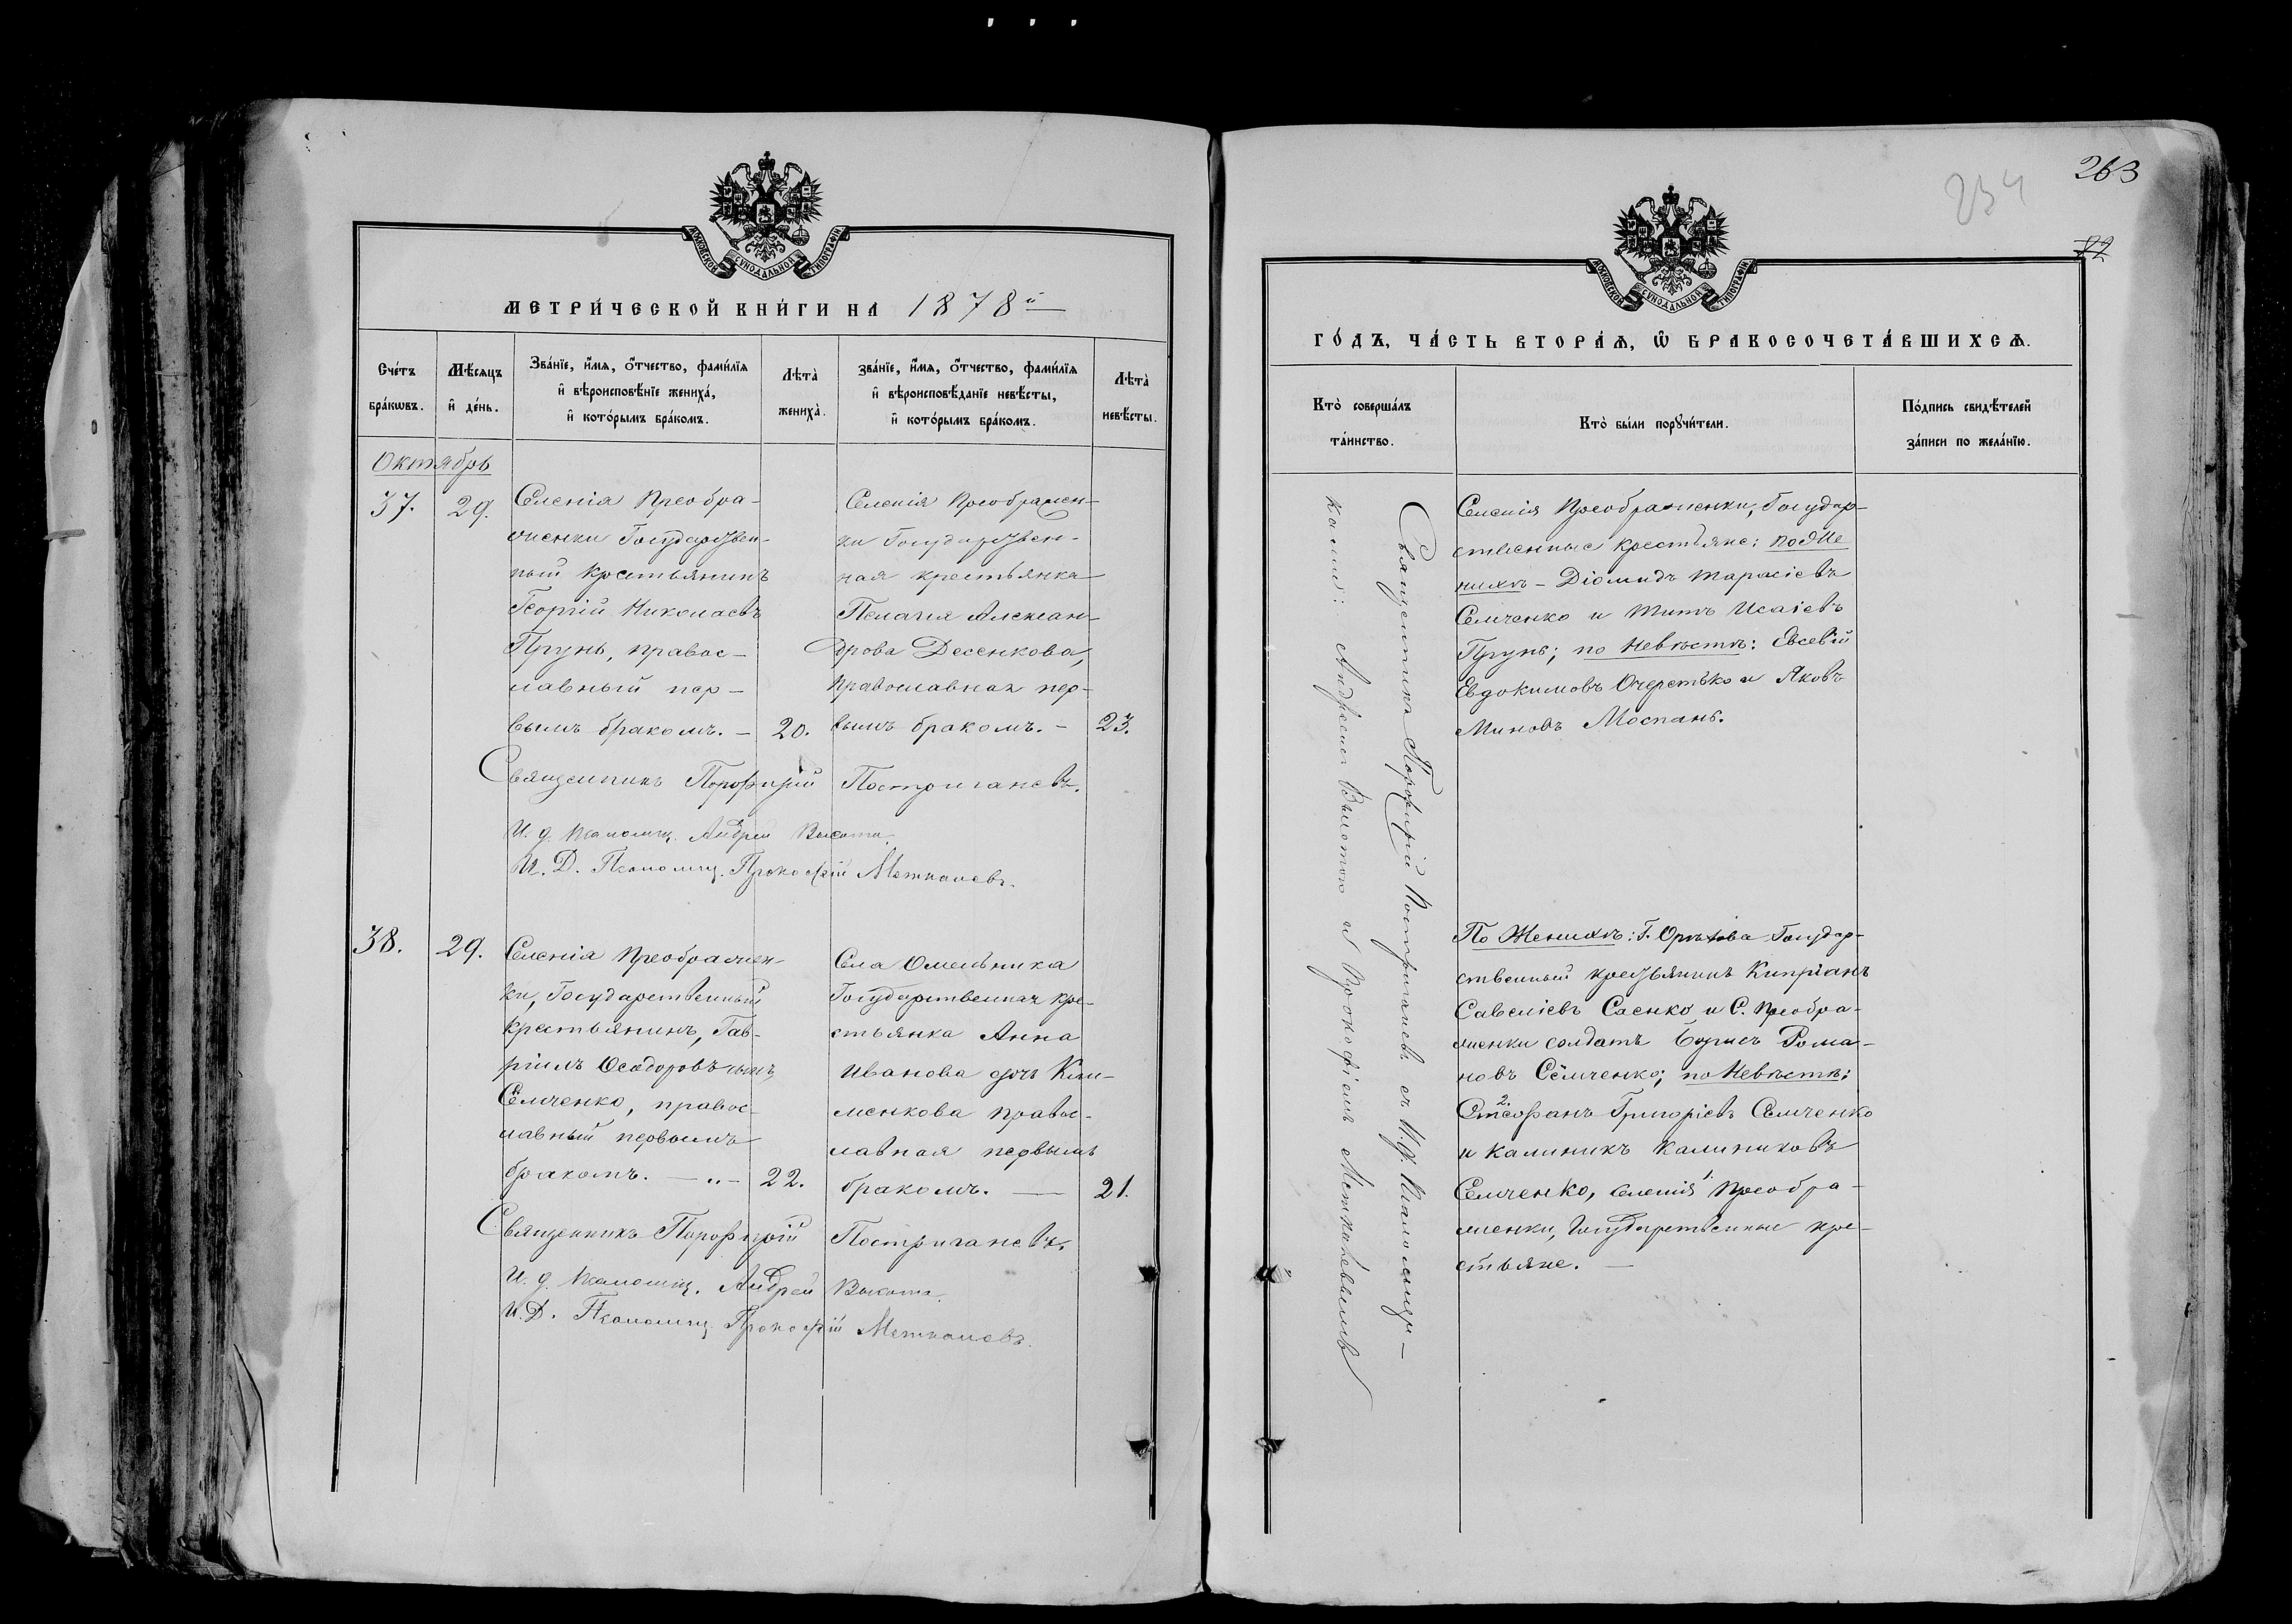 МОСКОВСКОЙ СѴНОДАЛЬНОЙ ТИПОГРАФІИ
МЕТРИ́ЧЕСКОЙ КНИ́ГИ НА 1878й
Сче́тъ бра́кωвъ.
Мѣ́сяцъ и҆ де́нь.
Зва́нїе, и҆́мя, ѻ҆́тчество, фами́лїя
и҆ вѣроисповѣ́нїе жениха́,
и҆ кото́рымъ бра́комъ.
Лѣта̀ жениха̀.
зва́нїе, и҆́мя, ѻ҆́тчество, фами́лїя
и҆ вѣроисповѣ́данїе невѣ́сты,
и҆ кото́рымъ бра́комъ.
Лѣта̀ невѣ́сты.
Октябрь
37.
29.
Селенія Преобра-
женки Государствен-
ный крестьянинъ
Георгій Николаевъ
Прунь, правос-
лавный пер-
вымъ бракомъ. –
20.
Селенія Преображен-
ки Государствен-
ная крестьянка
Пелагія Алексан-
дрова Десенкова,
православная пер-
вымъ бракомъ. –
23.
Священникъ Порофирій Постриганевъ.
И. д. псаломщ. Андрей Высота.
И. Д. Псаломщ. ПрокофійМеткалевъ.
38.
29.
Селенія Преображен-
ки, Государственный
крестьянинъ, Гав-
ріилъ Ѳеодоровъ сынъ
Семченко, правос-
лавный первымъ
бракомъ. — „ –
22.
Села Омельника
Государственная кре-
стьянка Анна
Иванова дочь Кли-
менкова правос-
лавная первымъ
бракомъ. —
21.
Священникъ Порофирій Постриганевъ.
И. д. псаломщ. Андрей Высота.
И. Д. Псаломщ. Прокофій Меткалевъ.
263
234
МОСКОВСКОЙ СѴНОДАЛЬНОЙ ТИПОГРАФІИ
ГО́ДЪ, ЧА́СТЬ ВТОРА́Я, Ѿ БРАКОСОЧЕТА́ВШИХСѦ.
Кто̀ соверша́лъ
та́инство.
Кто̀ бы́ли порꙋчи́тели.
По́дпись свидѣ́телей
за́писи по жела́нїю.
Священникъ Порофирій Постриганевъ съ И. д. Псаломщи-
ками: Андреемъ Высотою и Прокофіемъ Меткалевымъ
Селенія Преображенки, Государ-
ственные крестьяне: по Же
нихѣ – Діомидъ Тарасіевъ
Семченко и Титъ Исаіевъ
Прунь; по Невѣстѣ: Евсевій
Евдокимовъ Очеретько и Яковъ
Миновъ Моспанъ.
По Женихѣ: Г. Орѣхова Государ-
ственный крестьянинъ Кипріанъ
Савеліевъ Саенко и С. Преобра-
женки солдатъ Борисъ Рома-
новъ Семченко; по Невѣстѣ:
2.
Стефанъ Григоріевъ Семченко
и Калиникъ Калиниковъ
Семченко, селенія 1. Преобра-
женки, Государственные кре-
стьяне. —